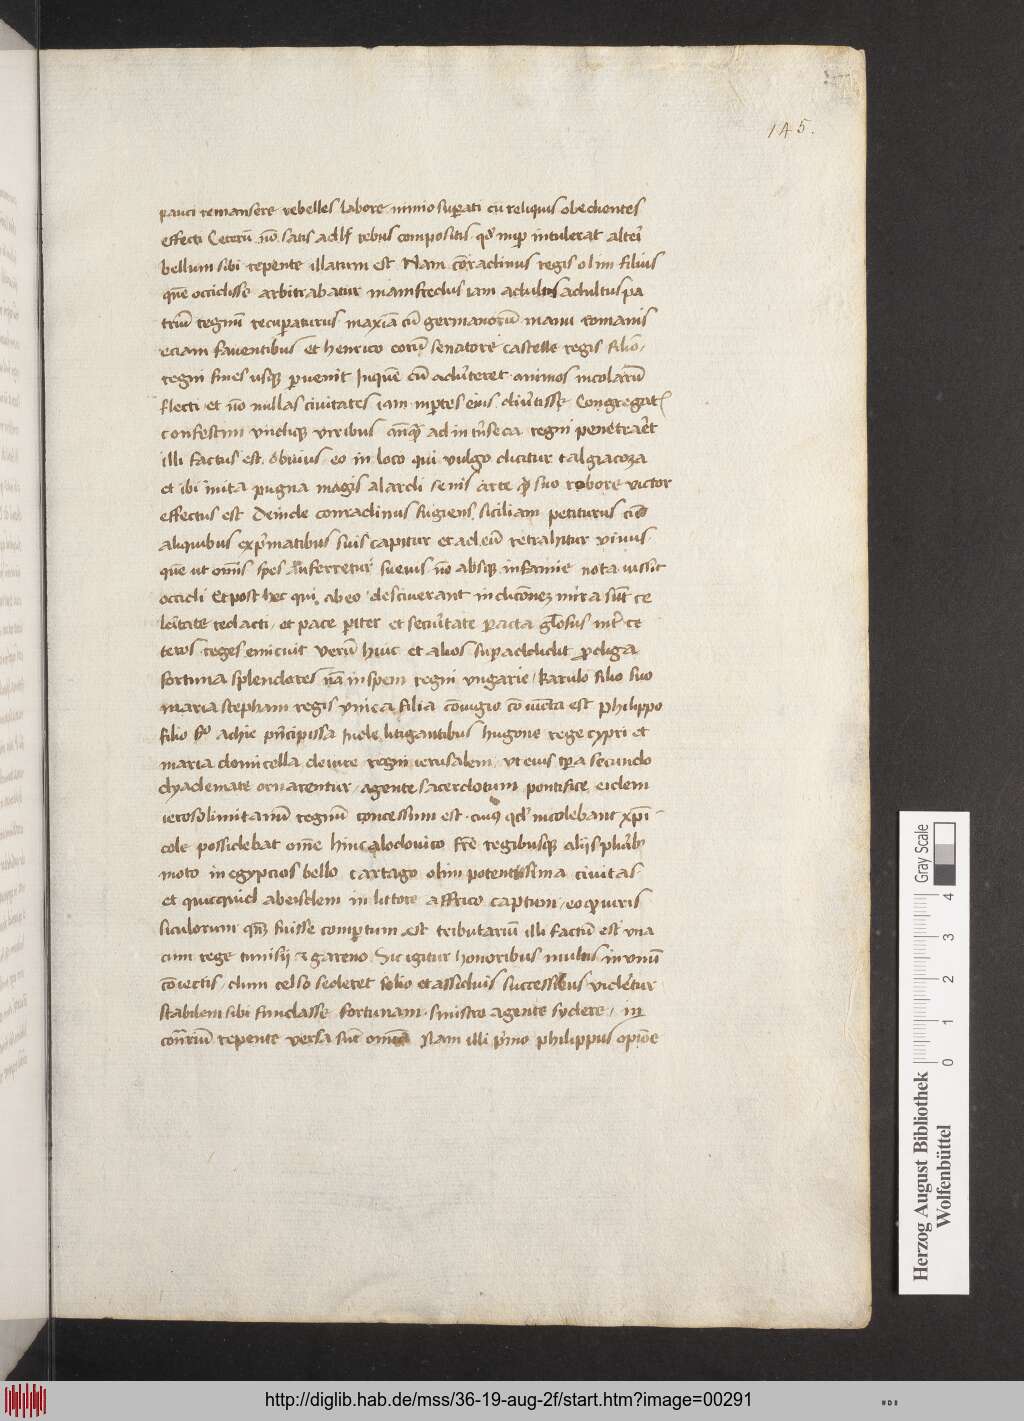 145.
pauci remansere rebelles labore nimio superati cū reliquis obedientes
effecti Ceterū nō satis adhuc rebus compositis qd nup intulerat alteri
bellum sibi repente illatum est Nam cōradinus regis olim filius
quē occidisse arbitrabatur mamfredus iam adultus adultus pa
triū regnū recuperaturus maxīa cū germanorū manu romanis
eciam faventibus et henrico eorū senatore castelle regis filio/
regni fines usq̨ pervenit Inquē cū adv̄teret animos incolarū
flecti et nō nullas civitates iam inp̄tes eius div̄tisse Congregatꝭ
confestim undiq̨ viribus anq̨ ad intrīseca regni penetraret
illi factus est obvius eo in loco qui vulgo dicitur talgiacoza
et ibi inita pugna magis alardi senis arte q̄ suo robore victor
effectus est Deinde conradinus fugiens siciliam petiturus cū
aliquibus exp̄matibus suis capitur et ad eū retrahitur vivus
quē ut omīs spes auferretur suevis nō absq̨ infamie nota iussit
occidi Et post hec qui abeo desciverant indicōnez mira sūt ce
leritate redacti / et pace piter et secūritate pacta glōsus inter ce
teros reges emicuit verū huic et alios superaddidit p̄diga
fortuna splendores nā inspem regni ungarie / karulo filio suo
maria stephani regis unica filia cōiugio cōiuncta est philippo
filio v̊ achie p̄ncipissa Inde litigantibus hugone rege cypri et
maria domicella deiure regni ierusalem / ut eius tp̄ra secundo
dyademate ornarentur / agente sacerdotum pontifice eidem
ierosolimitanū regnū concessum est cuius qd' incolebant xp̄i
cole possidebat om̄e hinc alodovico fr̄e regibusq̨ aliis plurib;
moto in egypcios bello cartago olim potentissima civitas
et quicquid abeisdem in littore affrico captum / eo q̨ viris
siculorum qn̄z fuisse compertum est tributariū illi factū est una
cum rege tunisii & gareno Sic igitur honoribus multis in unū
cōvectis dum celso sederet solio et assiduis successibus videretur
stabilem sibi fundasse fortunam sinistro agente sydere / in
contrariū repente versa sūt omnia Nam illi p̄mo philippus opiōe
Gray Scale
0 1 2 3 4
Herzog August Bibliothek
Wolfenbüttel
http://diglib.hab.de/mss/36-19-aug-2f/start.htm?image=00291